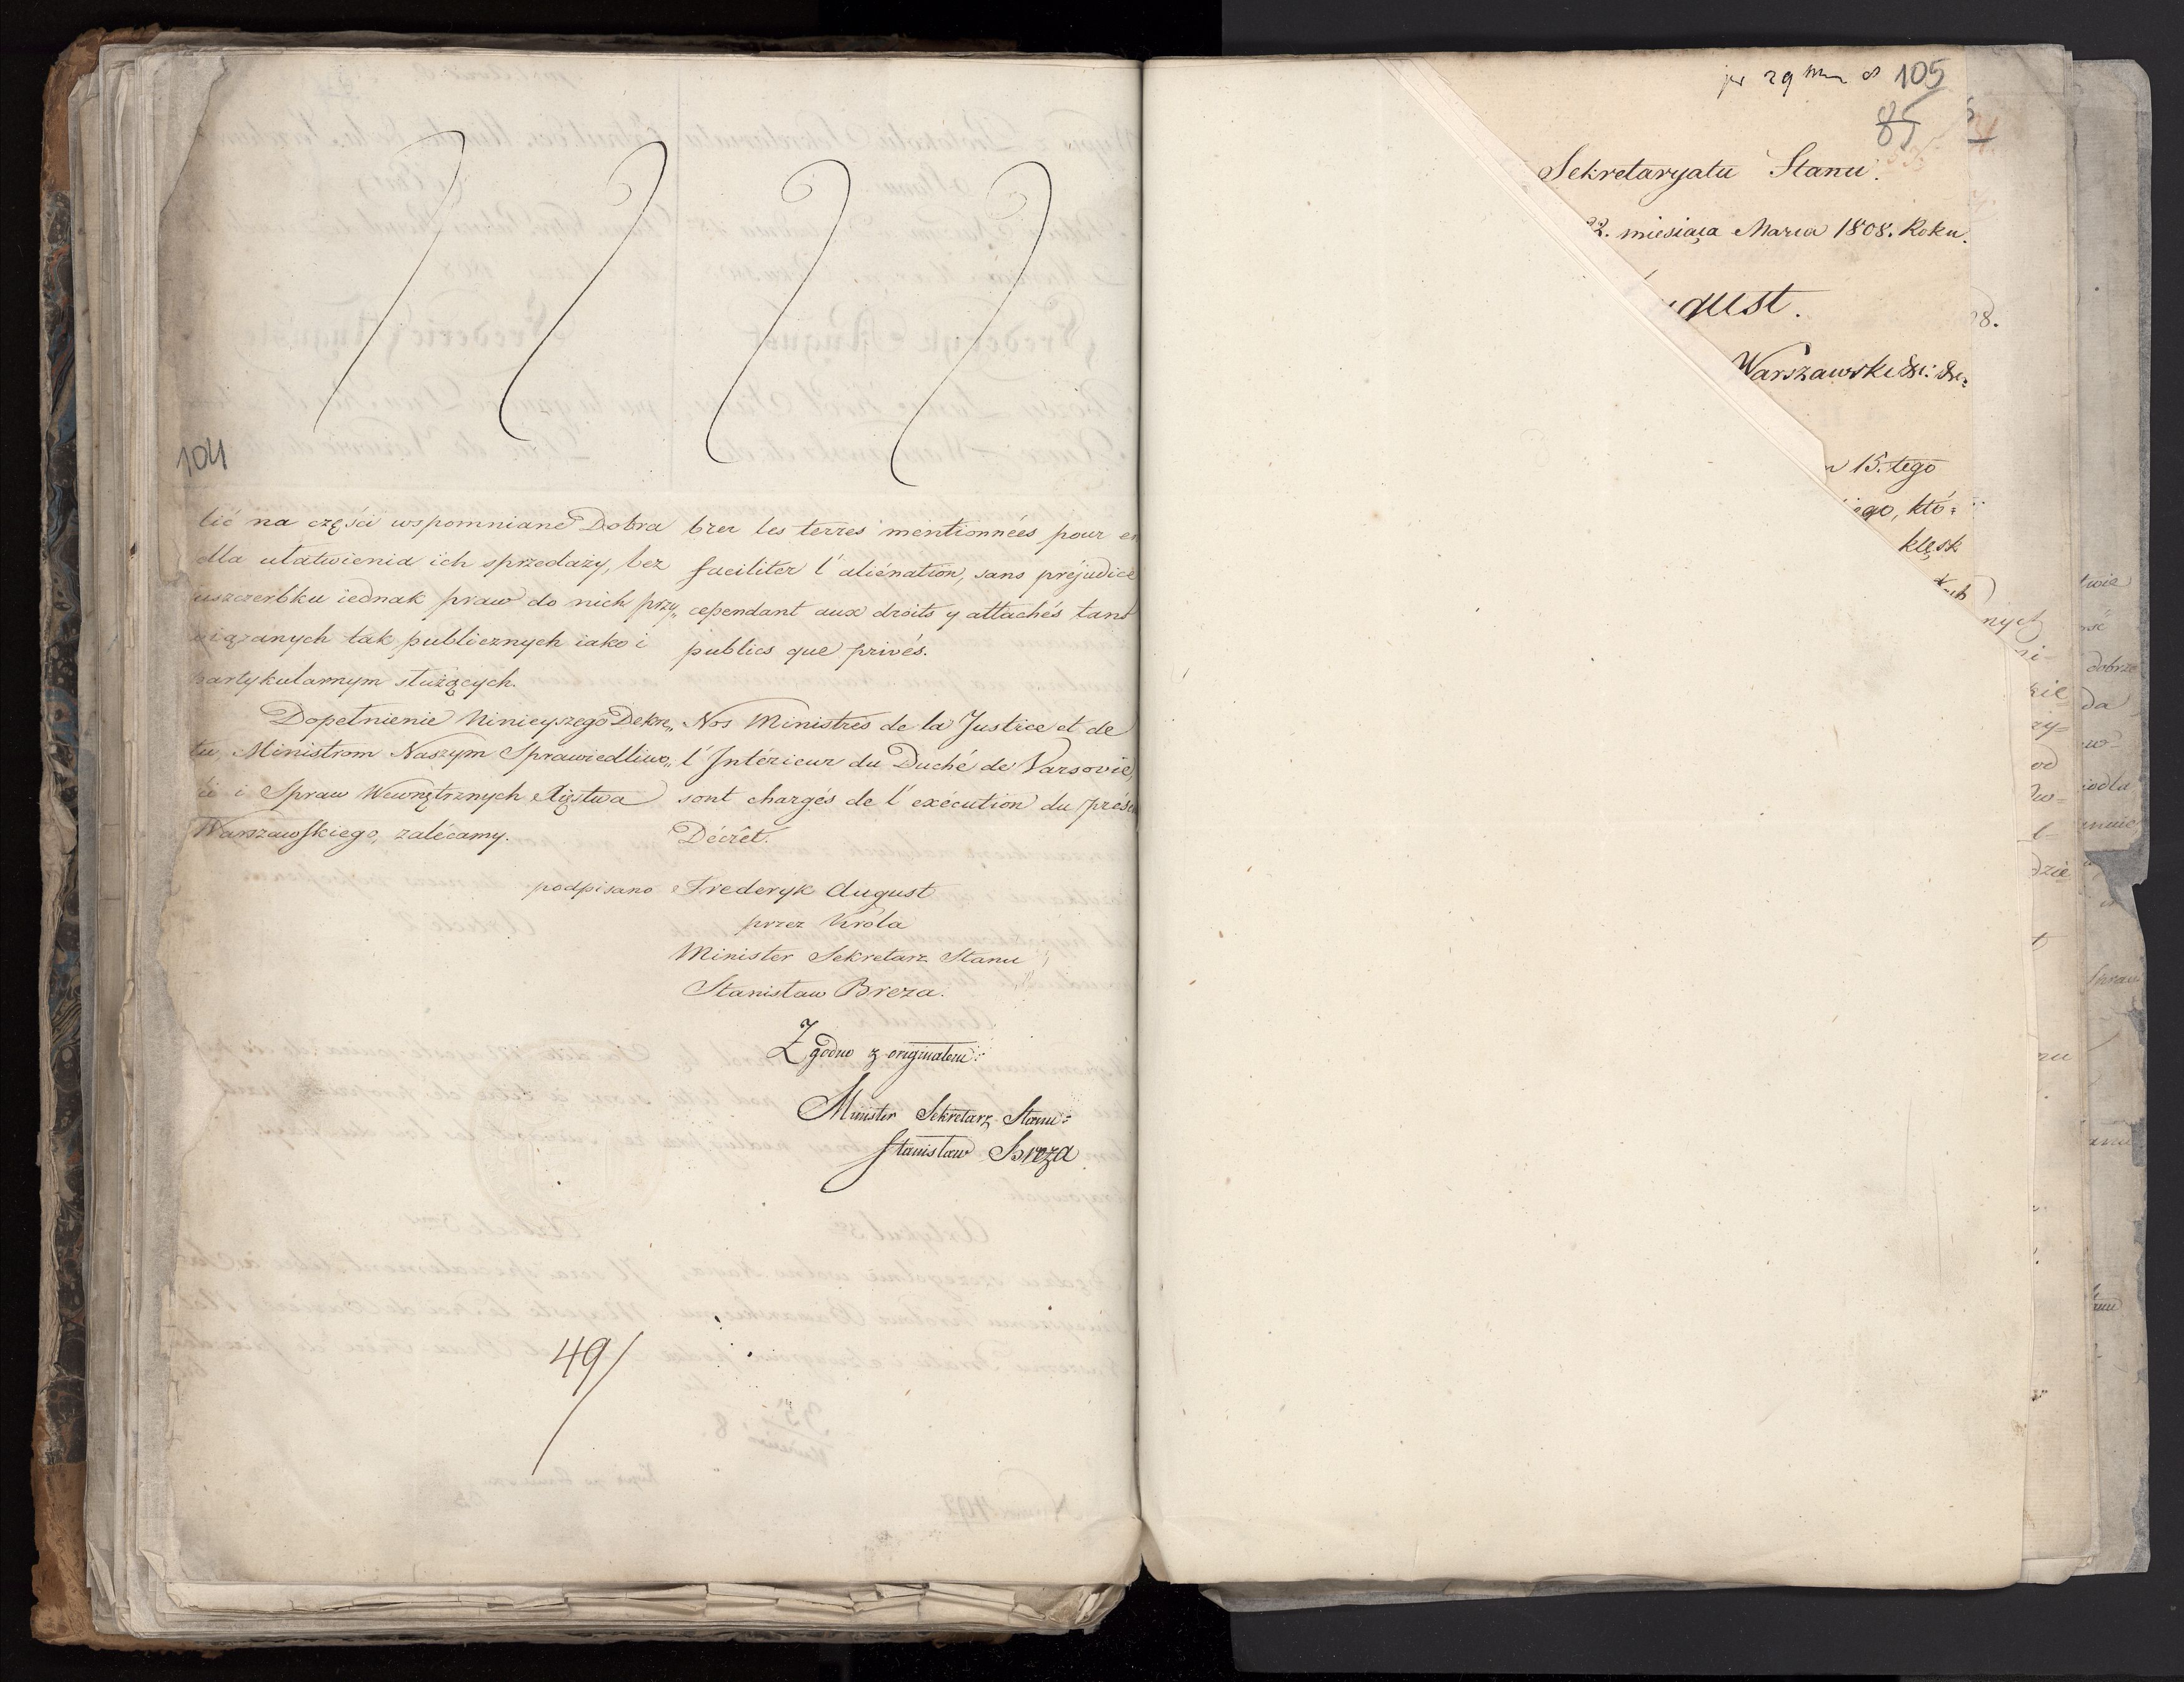 104
lić na części wspomniane Dobra
dla ułatwienia ich sprzedaży, bez
uszczerbku iednak praw do nich przy„
wiązanych tak publicznych iako i
partykularnym służących.
Dopełnienie Ninieyszego Dekre„
tu, Ministrom Naszym Sprawiedliwo„
ści i Spraw Wewnętrznych Xięstwa
Warszawskiego, zalécamy.
brer les terres mentionnées pour en
faciliter l'aliénation, sans préjudice
cependant aux droits y attachés tant
publics que privés.
Nos Ministres de la Justice et de
l'Intérieur du Duché de Varsovie,
sont chargés de l'exécution du prése
Décrêt.
podpisano Frederyk August
przez Króla
Minister Sekretarz Stanu
Stanisław Breza.
Zgodno z originałem:
Minister Sekretarz Stanu:
Stanisław Breza
49/
29 105
85
Sekretaryatu Stanu.
22. miesiąca Marca 1808. Roku.
gust.
Warszawski &c: &c:
15. tego
iego, któ:
klęsk
nych
dobrze
da
dzie